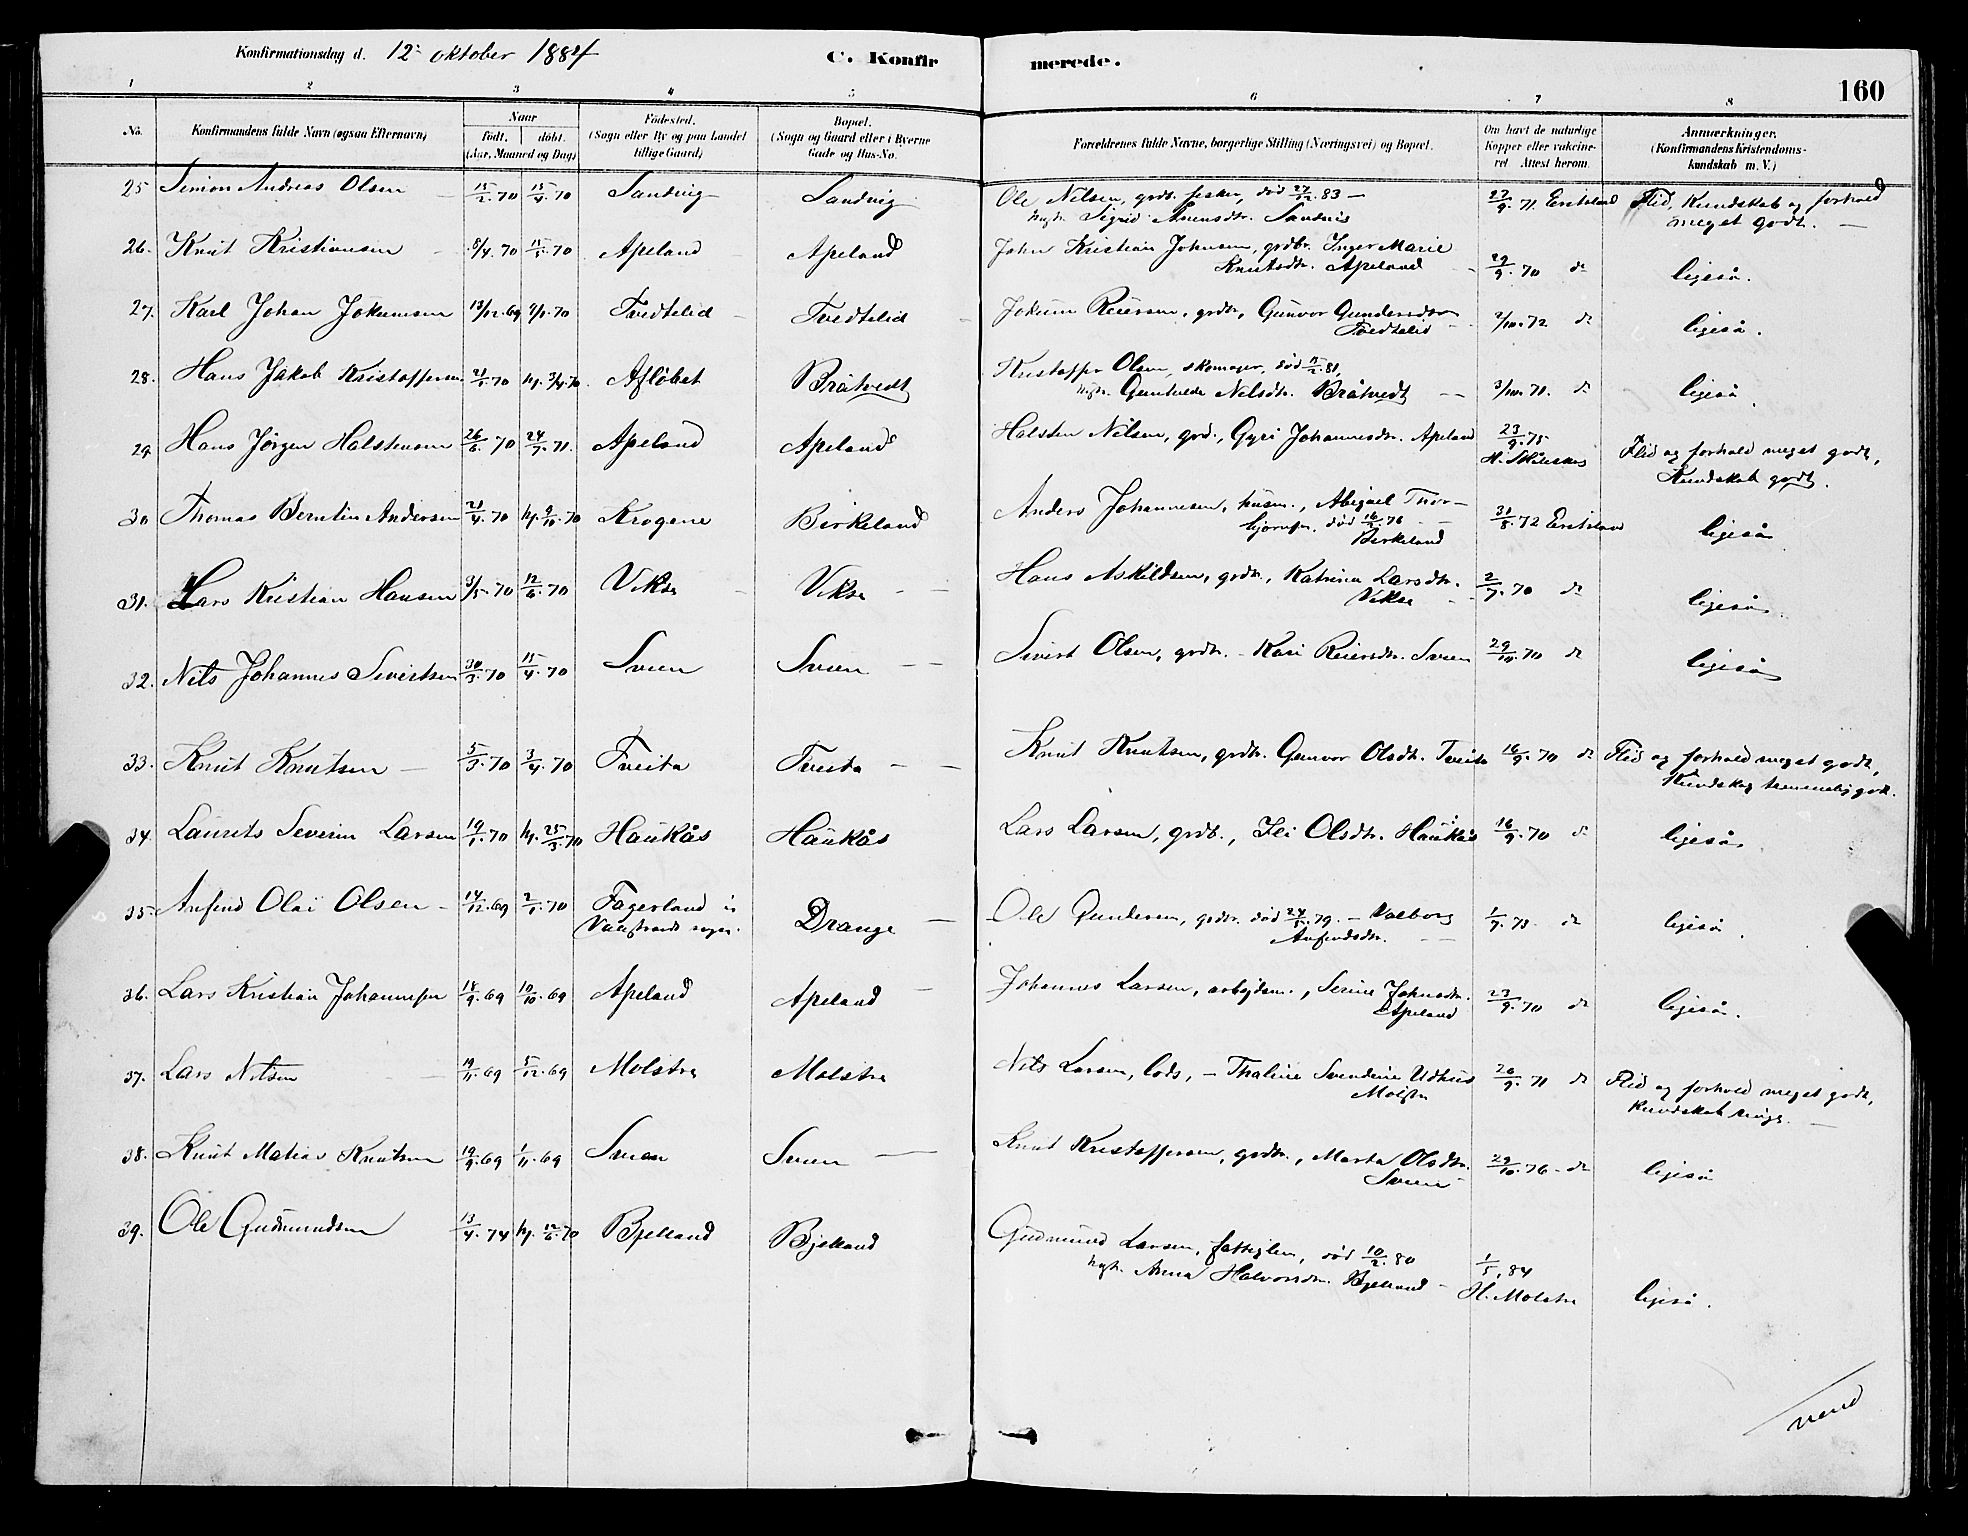 Konfirmationsdag d. 12te oktober 1884 C. Konfirmerede. 160
1 2 3 4 5 6 7 8
No. Konfirmandens fulde Navn (ogsaa Efternavn) Naar født. døbt. (Aar, Maaned og Dag) Fødested. (Sogn eller By og paa Landet tillige Gaard) Bopæl. (Sogn og Gaard eller i Byerne Gade og Hus-No. Forældrenes fulde Navne, borgerlige Stilling (Næringsvei) og Bopæl. Om havt de naturlige Kopper eller vakcineret Attest herom. Anmærkninger. (Konfirmandens Kristendomskundskab m. V.)
25 Simon Andreas Olsen 15/2. 70 15/4. 70 Sandvig Sandvig Ole Nilsen, grdb. fisker, død 27/12. 83 – 22/9. 71. Flid, Kundskab og forhold
Sigrid meget godt. —
26. Knut Kristiansen 8/4. 70 15/5. 70 Apeland Apeland John Kristian Johnsen, grdbr. Inger Marie
Knutsdtr. Apeland 29/9. 70 do ligeså.
27. Karl Johan Jokumsen 13/12. 69 70 Tvedtelid Tvedtelid Jokum Reiersen, grdbr., Gunvor Gundersdtr
Tvedtelid 2/10. 72 do ligeså.
28. Hans Jakob Kristoffersen 21/1. 70 hj. 3/4. 70. Afløbet Bråtvedt Kristoffer Olsen, skomager, død 81,
Nilsdtr. Bråtvedt 3/10. 71. do ligeså.
29. Hans Jørgen Halstensen 26/6. 70 24/7. 71. Apeland Apeland Halsten Nilsen, grd., Gyri Johannesdtr. Apeland 23/9. 75
Flid og forhold meget godt,
Kundskab godt.
30 Thomas Berntin Andersen 21/4. 70 hj. 9/10. 70 Krogene Birkeland Anders Johannesen, husm., Abigael Thor-
bjørnsen. død 16/5. 76 Birkeland 31/8. 72 ligeså
31. Lars Kristian Hansen 3/5. 70 12/6. 70 Vikse Vikse Hans Askildsen, grdbr., Katrina Larsdtr.
Vikse 2/7. 70 do ligeså.
32. Nils Johannes Sivertsen 30/3. 70 15/4. 70 Sveen Sveen Sivert Olsen, grdbr. – Kari Reiersdtr. Sveen 29/10. 70 do ligeså
33. Knut Knutsen 5/3. 70 3/4. 70 Tveita Tveita Knut Knutsen, grdbr. Gunvor Olsdtr. Tveita 16/9. 70 do Flid og forhold meget godt,
Kundskab temmelig godt.
34. Laurits Severin Larsen 19/1. 70 hj. 25/3. 70 Haukås Haukås Lars Larsen, grdb., Ili Olsdtr. Haukås 16/9. 70 do ligeså
35 Anfind Olai Olsen 14/12. 69 2/1. 70 Fagerland i
sogn. Drange Ole Gundersen, grdbr. død 24/5. 79. – Valborg
Anfindsdtr. 1/7. 75 do ligeså.
36. Lars Kristian Johannesen 18/9. 69 10/10. 69 Apeland Apeland Johannes Larsen, arbejdsm., Serine Johnsdtr.
Apeland 23/9. 70 do ligeså.
37. Lars Nilsen 19/11. 69 5/12. 69 Molstre Molstre Nils Larsen, lods, – Thaline Svendine Udhus
Molstre 26/9. 71 do Flid og forhold meget godt,
Kundskab någe. —
38. Knut Matias Knutsen 19/9. 69 1/11. 69 Sveen Sveen Knut Kristoffersen, grdbr., Marta Olsdtr.
Sveen 29/10. 76 do ligeså
39. Ole Gudmundsen 13/4. 74 hj. 12/6. 70 Bjelland Bjelland Gudmund Larsen, fattiglem, død 10/2. 80
Anna Halvorsdtr. Bjelland 1/5. 84
H. Molstre ligeså.
vend